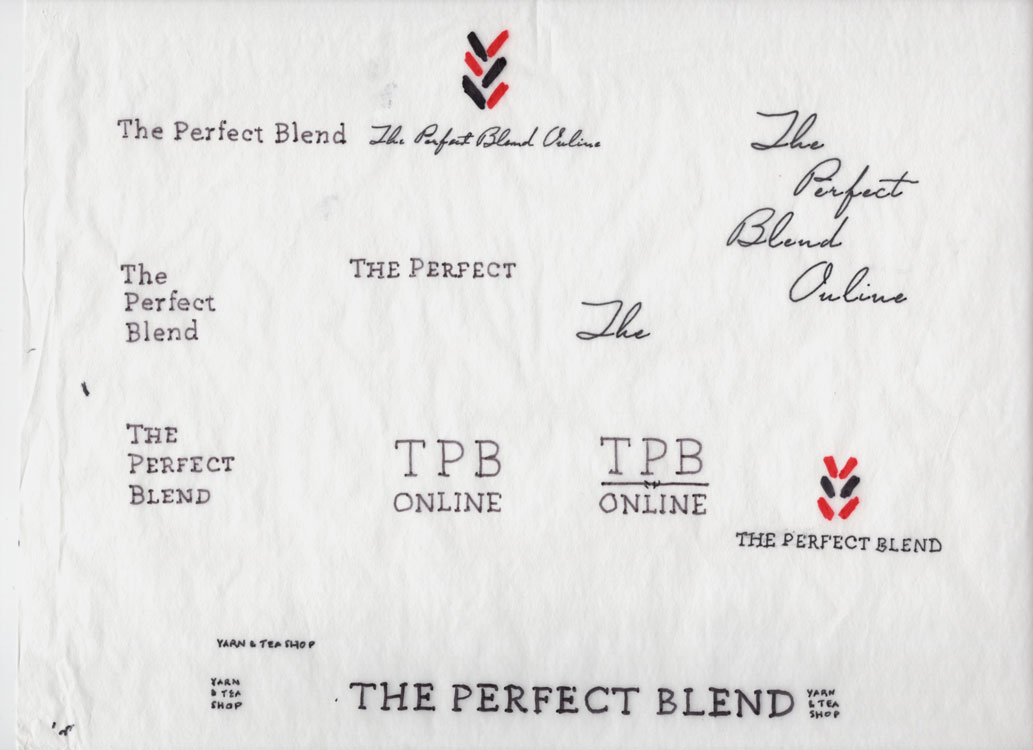 The Perfect Blend
The Perfect Blend Online
The
Perfect
Blend
Online
The
Perfect
Blend
THE PERFECT
The
THE
PERFECT
BLEND
TPB
ONLINE
TPB
ONLINE
THE PERFECT BLEND
YARN & TEA SHOP
YARN
& TEA
SHOP
THE PERFECT BLEND
YARN
& TEA
SHOP